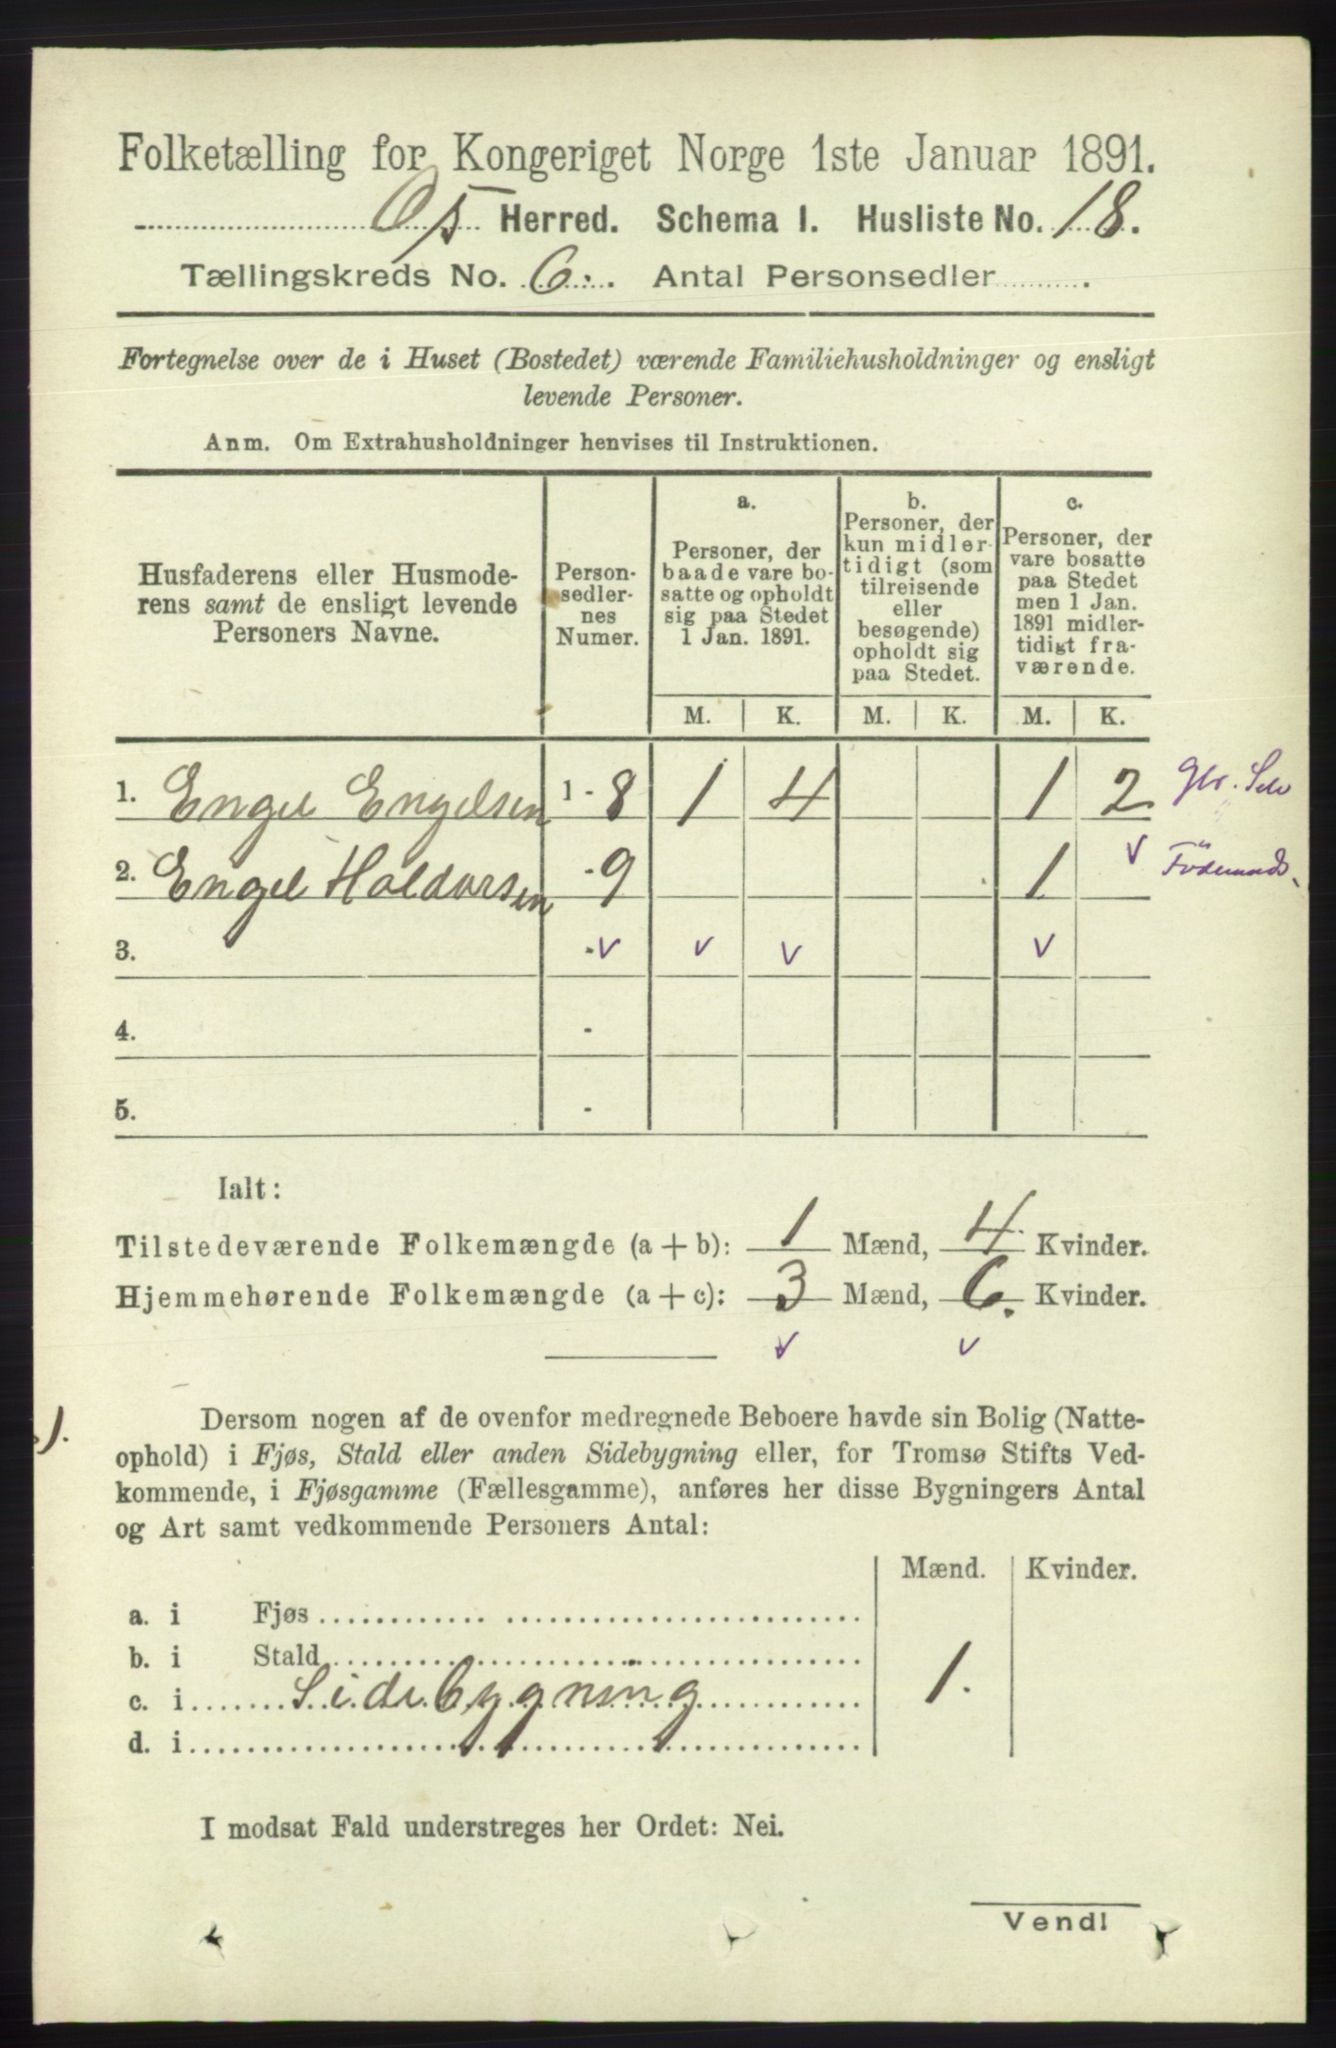 Folketælling for Kongeriget Norge 1ste Januar 1891.
Os Herred. Schema I. Husliste No. 18.
Tællingskreds No. 6. Antal Personsedler
Fortegnelse over de i Huset (Bostedet) værende Familiehusholdninger og ensligt
levende Personer.
Anm. Om Extrahusholdninger henvises til Instruktionen.
Husfaderens eller Husmode-
rens samt de ensligt levende
Personers Navne.
Person-
sedler-
nes
Numer.
a.
Personer, der
baade vare bo-
satte og opholdt
sig paa Stedet
1 Jan. 1891.
b.
Personer, der
kun midler-
tidigt (som
tilreisende
eller
besøgende)
opholdt sig
paa Stedet.
c.
Personer, der
vare bosatte
paa Stedet
men 1 Jan.
1891 midler-
tidigt fra-
værende.
M. K. M. K. M. K.
1. Engel Engelsen 1 - 8 1 4 1 2 Gbr. Selv
2. Engel Haldorsen - 9 1 v Föderaads.
3. - v v v v
4. -
5. -
Ialt:
Tilstedeværende Folkemængde (a + b): 1 Mænd, 4 Kvinder.
Hjemmehørende Folkemængde (a + c): 3 Mænd, 6. Kvinder.
v v
Dersom nogen af de ovenfor medregnede Beboere havde sin Bolig (Natte-
ophold) i Fjøs, Stald eller anden Sidebygning eller, for Tromsø Stifts Ved-
kommende, i Fjøsgamme (Fællesgamme), anføres her disse Bygningers Antal
og Art samt vedkommende Personers Antal:
Mænd. Kvinder.
a. i Fjøs
b. i Stald
c. i Sidebygning 1.
d. i
I modsat Fald understreges her Ordet: Nei.
Vend!